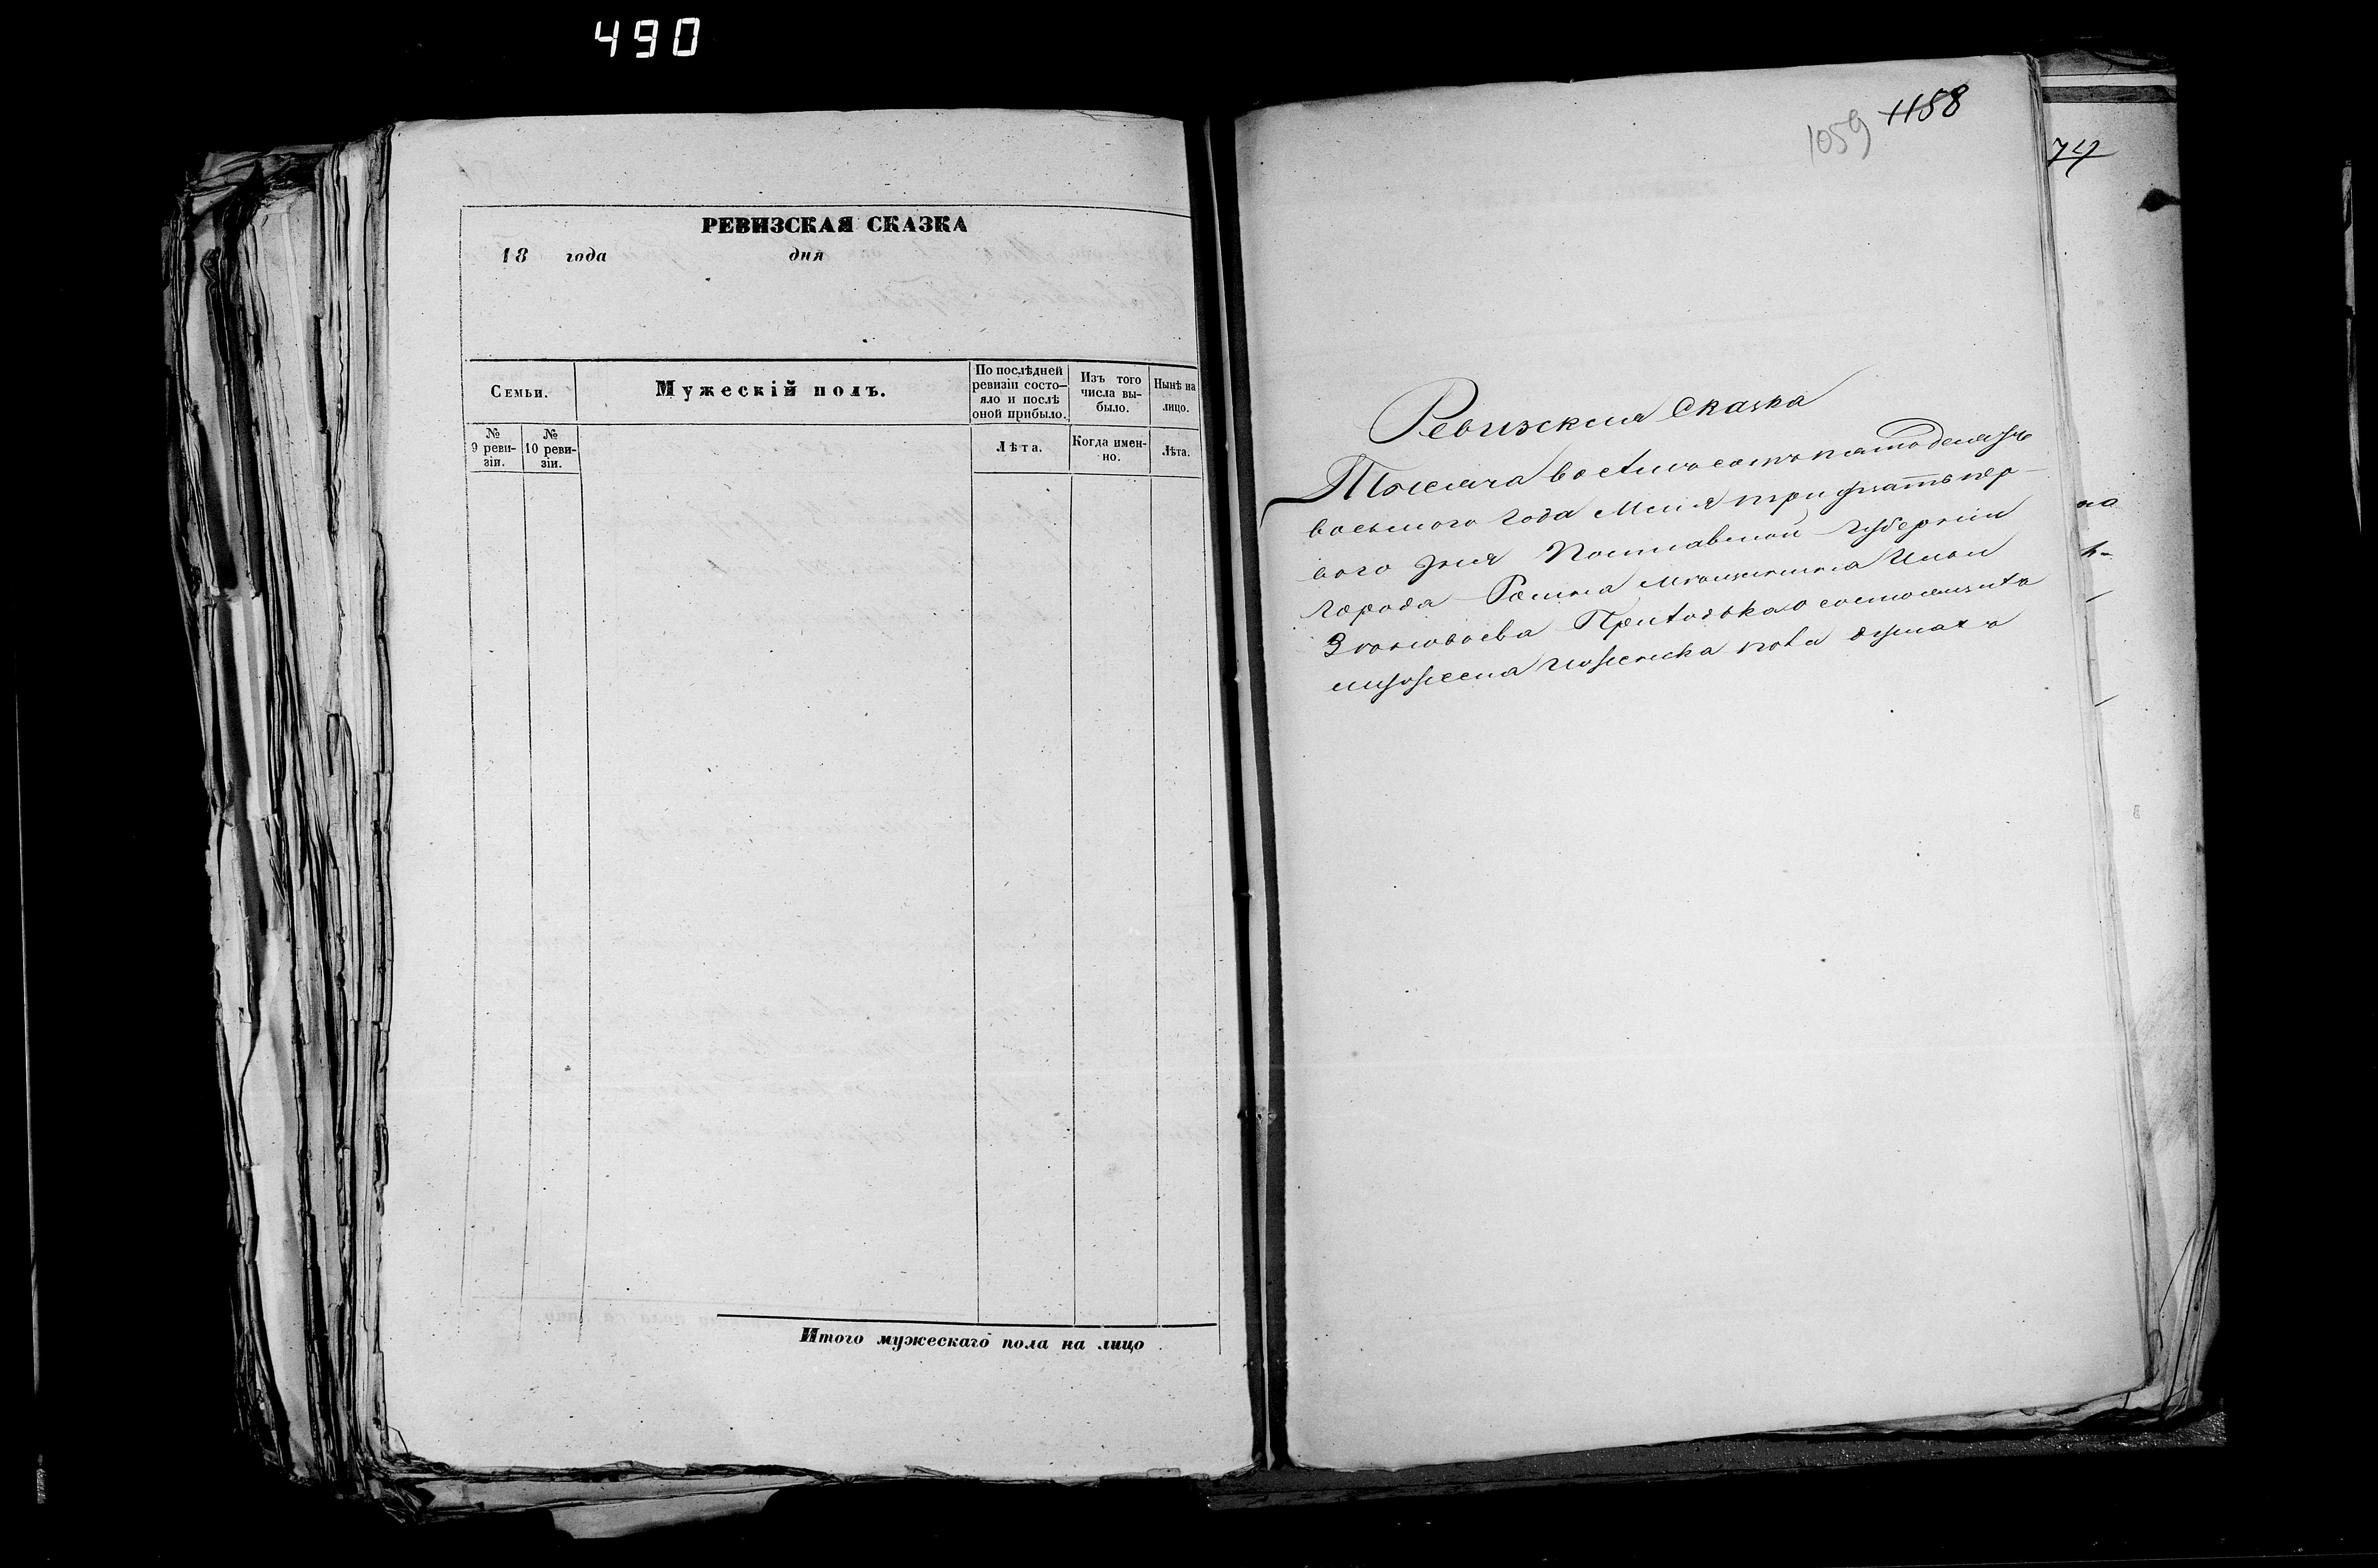 490
РЕВИЗСКАЯ СКАЗКА
18 года дня
Семьи.
Мужескій полъ.
По послѣдней ревизіи состо-яло и послѣ оной прибыло.
Изъ того числа вы-было.
Нынѣ на лицо.
№ 9 реви-зіи.
№ 10 реви-зіи.
Лѣта.
Когда имен-но.
Лѣта.
Итого мужескаго пола на лицо
1059 1158
Ревизская Сказка
Тысяча восемьсотъ пятодесятъ
восьмого года Мая тридцать пер-
вого дня Полтавской Губерніи
города Ромна мещанина
Притодька о состоящихъ
мужеска женска пола душахъ
на